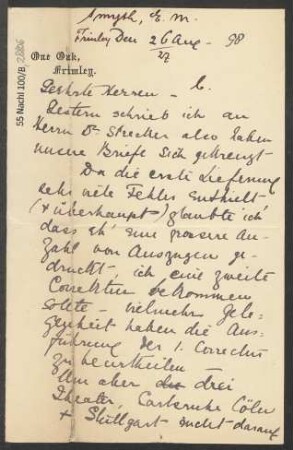 Smyth, E. M.
Frimley Den 26 Aug - 98
One Oak,
Frimley.
55 Nachl 100/B,
Geehrte Herren -
Gestern schrieb ich an
Herrn Dr Strecker also haben
unsere Briefe sich gekreuzt -
Da die erste Lieferung
sehr viele Fehler enthielt
(& überhaupt) glaubte ich
dass eh' eine grossere An-
zahl von Auszugen ge-
druckt, ich eine zweite
Correktur bekommen
sollte - vielmehr Gele-
genheit haben die Aus-
führung der 1. Correctur
zu beurtheilen -
Um aber drei
Theater, Carlsruhe Cöln
& Stuttgart nicht darauf